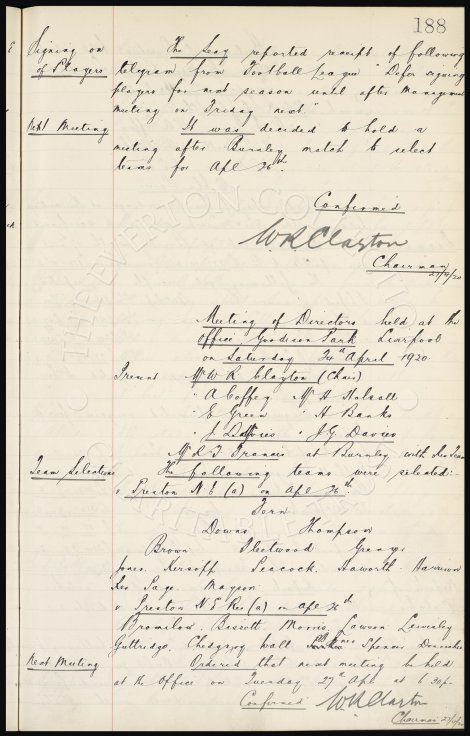 188
Signing on of Players
The Secy reported receipt of following
telegram from Football League "Defer signing
players for next season until after Management
meeting on Friday next."
Next Meeting
It was decided to hold a
meeting after Burnley match to select
teams for Apl 26th.
Confirmed
W R Clayton
Chairman
27/4/20
Meeting of Directors held at the
Office Goodison Park Liverpool
on Saturday 24th April 1920.
Present Mr W R Clayton (Chair)
" A Coffey Mr H Halsall
" E Green " H Banks
" J Davies " J G Davies
Mr D F Francis at Burnley with Res Team
Team Selection
The following teams were selected:-
v Preston N E (a) on Apl 26th.
Fern
Downs Thompson
Brown Fleetwood Grenyer
Jones. Kirsopp Peacock. Howarth Harrison
Res Page. Mayson
v Preston N E Res (a) on Apl 26th
Bromilow. Bissett Morris, Lawson Lievesley
Guttridge, Chedgzoy Wall Jones Spencer Donnachie
Next Meeting
Ordered that next meeting be held
at the Office on Tuesday 27th Apl at 6.30 p.
Confirmed W R Clayton
Chairman 27/4/20
THE EVERTON COLLECTION CHARITABLE TRUST